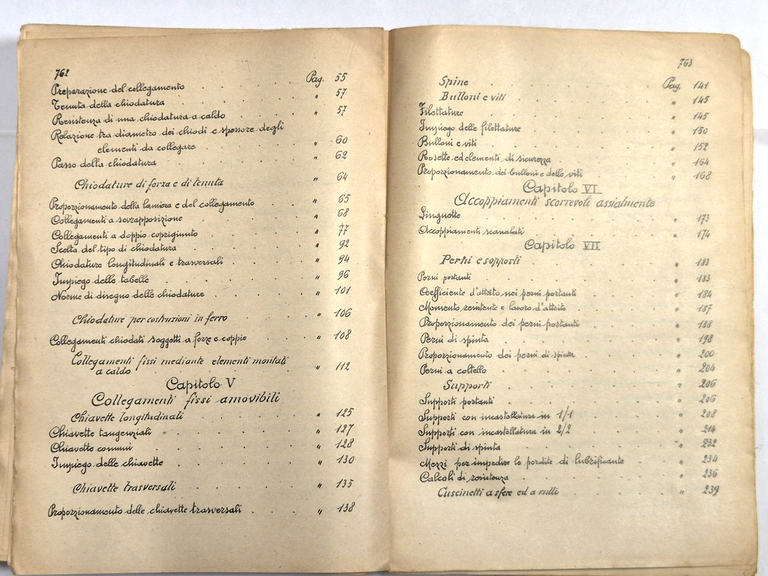 762
Pag. 55
Preparazione del collegamento " 57
Tenuta della chiodatura " 57
Resistenza di una chiodatura a caldo
Relazione tra diametro dei chiodi e spessore degli
elementi da collegare " 60
Passo della chiodatura " 62
Chiodature di forza e di tenuta " 64
Proporzionamento della lamiera e del collegamento " 65
Collegamenti a sovrapposizione " 68
Collegamenti a doppio coprigiunto " 77
Scelta del tipo di chiodatura " 92
Chiodature longitudinali e trasversali " 94
Impiego delle tabelle " 96
Norme di disegno delle chiodature " 101
Chiodature per costruzioni in ferro " 106
Collegamenti chiodati soggetti a forze e coppie " 108
Collegamenti fissi mediante elementi montati
a caldo " 112
Capitolo V
Collegamenti fissi amovibili
Chiavette longitudinali " 125
Chiavette tangenziali " 127
Chiavette comuni " 128
Impiego delle chiavette " 130
Chiavette trasversali " 135
Proporzionamento delle chiavette trasversali " 138
763
Spine Pag. 141
Bulloni e viti " 145
Filettature " 145
Impiego delle filettature " 150
Bulloni e viti " 152
Rosette ed elementi di sicurezza " 164
Proporzionamento dei bulloni e delle viti " 168
Capitolo VI
Accoppiamenti scorrevoli assialmente
Linguette " 173
Accoppiamenti scanalati " 174
Capitolo VII
Perni e sopporti " 183
Perni portanti " 183
Coefficiente d'attrito nei perni portanti " 184
Momento resistente e lavoro d'attrito " 187
Proporzionamento dei perni portanti " 188
Perni di spinta " 198
Proporzionamento dei perni di spinta " 200
Perni a coltello " 204
Supporti " 206
Supporti portanti " 206
Supporti con incastellatura in 1/1 " 208
Supporti con incastellatura in 2/2 " 214
Supporti di spinta " 232
Mezzi per impedire le perdite di lubrificante " 234
Calcoli di resistenza " 236
Cuscinetti a sfere ed a rulli " 239